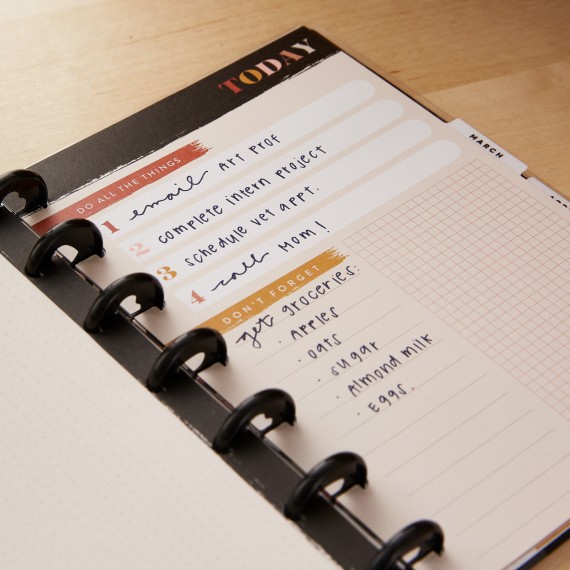 TODAY
DO ALL THE THINGS
1 email Art Prof
2 complete intern project
3 schedule vet appt.
4 call Mom!
DON'T FORGET
get groceries:
· Apples
· oats
· sugar
· Almond milk
· Eggs.
MARCH